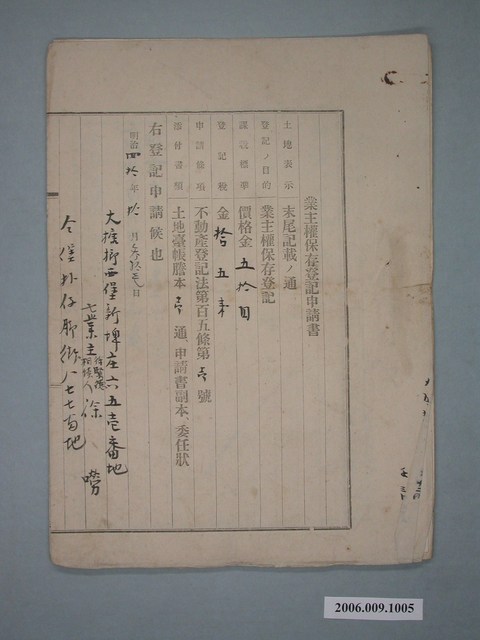 業主權保存登記申請書
土地表示 末尾記載ノ通
登記ノ目的 業主權保存登記
課稅標準 價格金五拾圓
登記稅 金拾五錢
申請條項 不動產登記法第百五條第壱號
添付書類 土地臺帳謄本壱通、申請書副本、委任狀
右登記申請候也
明治四拾年拾月 日
大槺榔西堡新埤庄六五壱番地
業主 相續人 徐 嘮
仝堡外仔 八七七番地
2006.009.1005